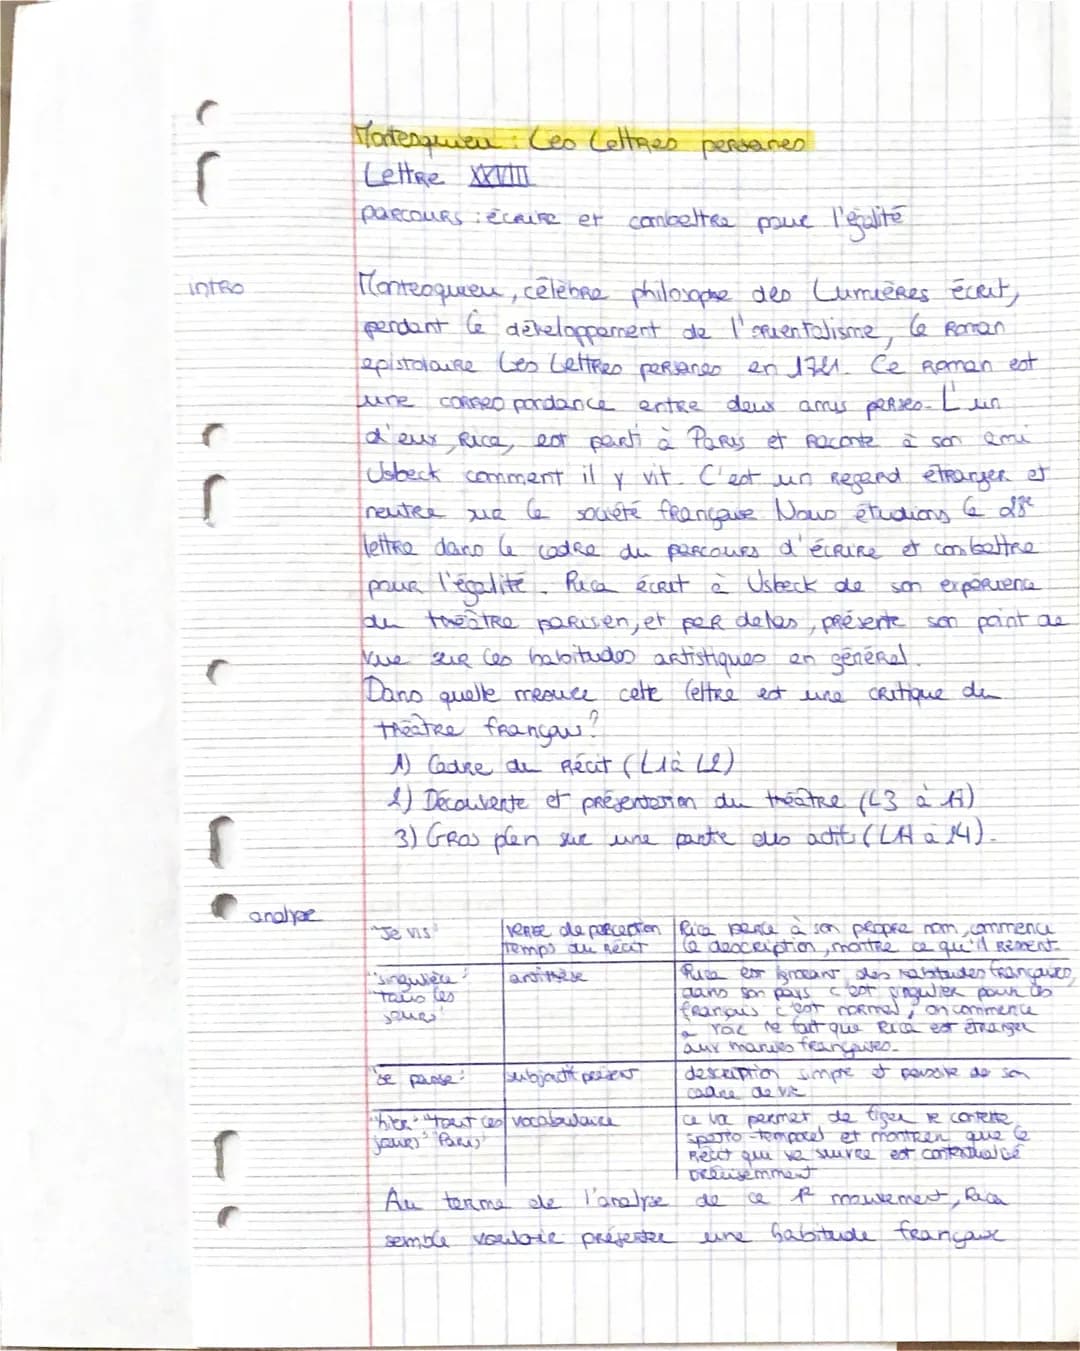 Montesquieu : Les Lettres persanes
Lettre XXVIII
parcours : écrire et combattre pour l'égalité
intro
Montesquieu, célèbre philosophe des Lumières écrit,
pendant le développement de l'orientalisme, le roman
epistolaire Les Lettres persanes en 1721. Ce roman est
une correspondance entre deux amis perses. L'un
d'eux, Rica, est parti à Paris et raconte à son ami
Usbeck comment il y vit. C'est un regard étranger et
neutre sur la société française. Nous étudions la 28e
lettre dans le cadre du parcours d'écrire et combattre
pour l'égalité. Rica écrit à Usbeck de son expérience
du théâtre parisien, et par delas, présente son point de
vue sur les habitudes artistiques en général.
Dans quelle mesure cette lettre est une critique du
théâtre français ?
1) Cadre du récit (L1 à L2)
2) Découverte et présentation du théâtre (L3 à 11)
3) Gros plan sur une partie des (L11 à 14).
analyse
"Je vis" verbe de perception temps du récit Rica à son propre nom, commence la description, montre ce qu'il ressent
"singulière" "tous les jours" antithèse Rica est ignorant des habitudes françaises, dans son pays c'est singulier pour les français c'est normal, on commence à voir le fait que Rica est étranger aux françaises.
"se passe" subjonctif présent description simple et de son cadre de vie
"hier" "tout les jours" "Paris" vocabulaire ce va permet de figer le contexte spatio-temporel et montrer que le récit qui va suivre est contextualisé précisemment
Au terme de l'analyse de ce 1er mouvement, Rica
semble vouloir présenter une habitude française